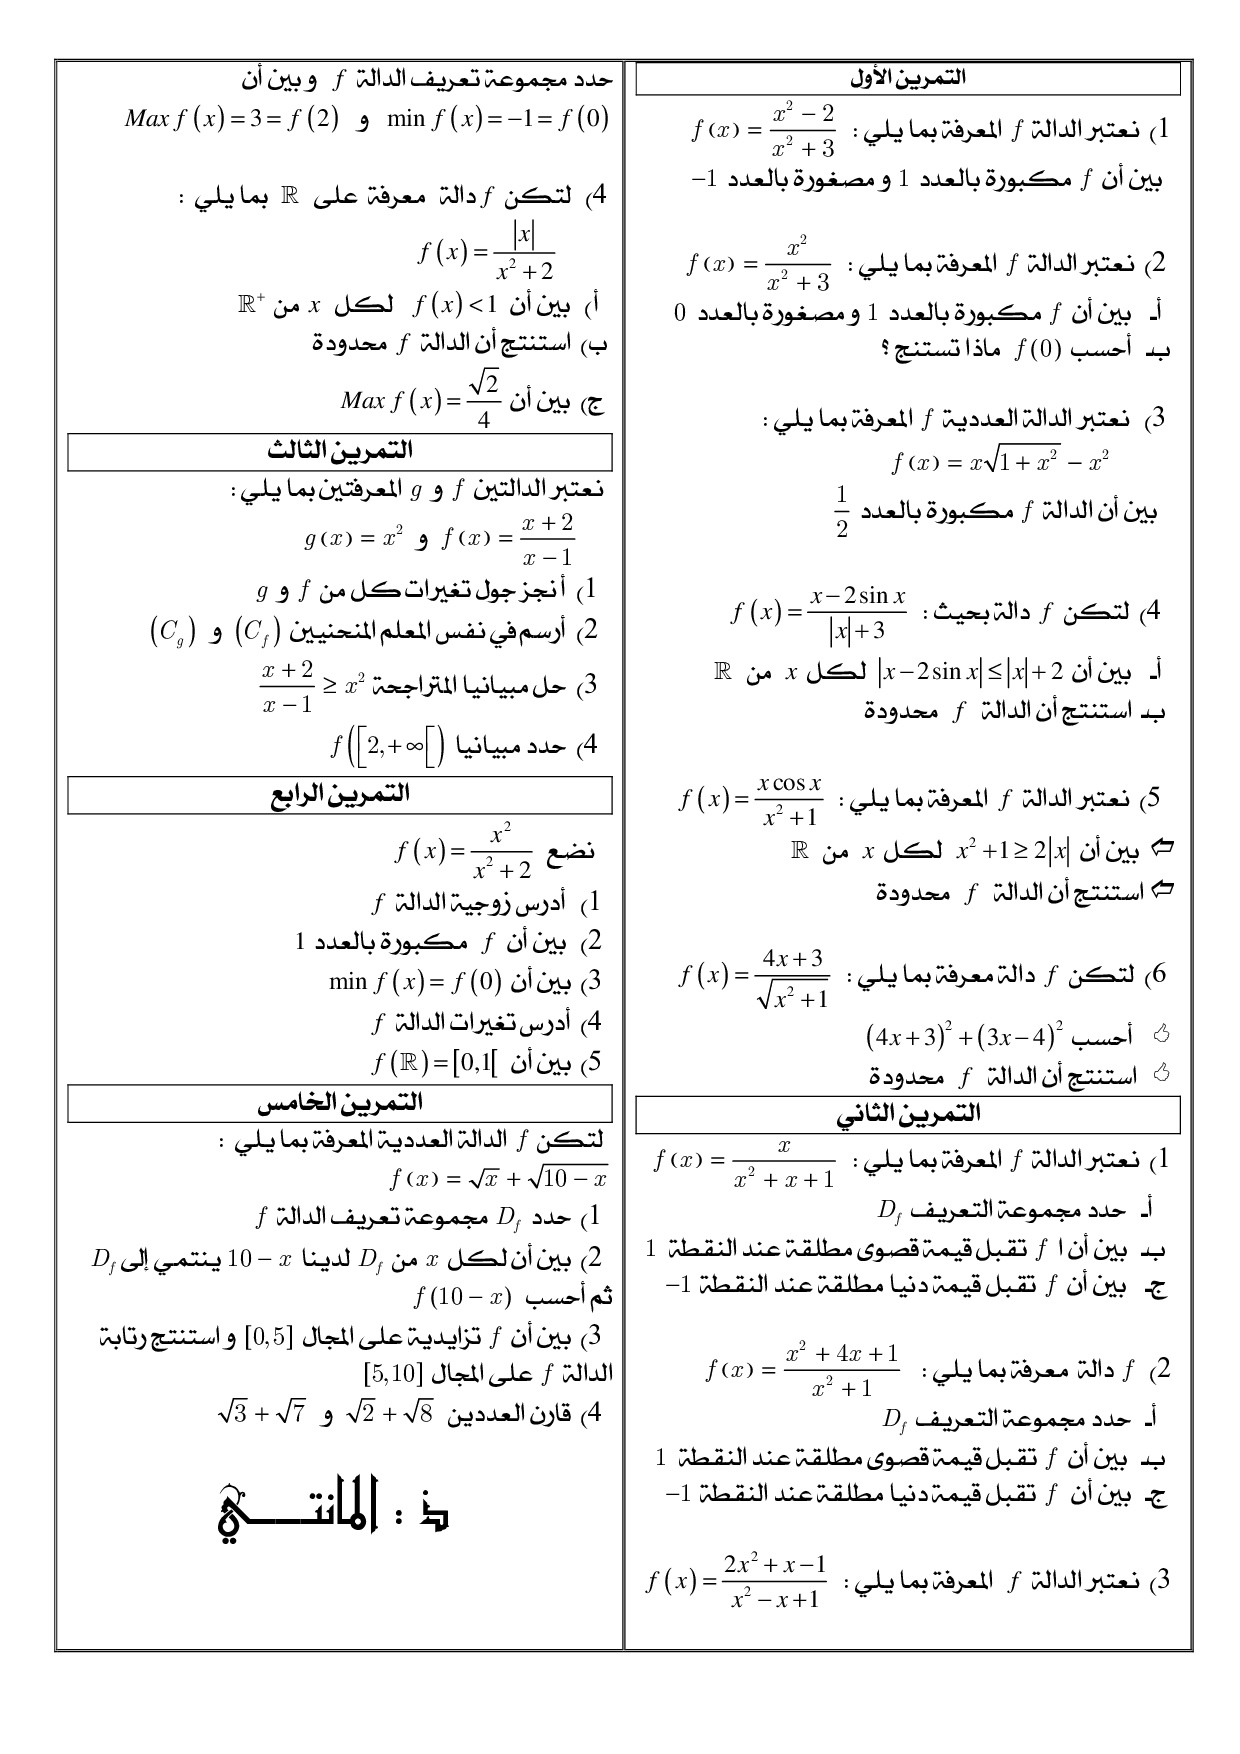 التمرين الأول
1) نعتبر الدالة f المعرفة بما يلي : f(x) = (x² − 2)/(x² + 3)
بين أن f مكبورة بالعدد 1 و مصغورة بالعدد −1
2) نعتبر الدالة f المعرفة بما يلي : f(x) = x²/(x² + 3)
أـ بين أن f مكبورة بالعدد 1 و مصغورة بالعدد 0
بـ أحسب f(0) ماذا تستنج ؟
3) نعتبر الدالة العددية f المعرفة بما يلي :
f(x) = x√(1 + x²) − x²
بين أن الدالة f مكبورة بالعدد 1/2
4) لتكن f دالة بحيث : f(x) = (x − 2 sin x)/(|x| + 3)
أـ بين أن |x − 2 sin x| ≤ |x| + 2 لكل x من ℝ
بـ استنتج أن الدالة f محدودة
5) نعتبر الدالة f المعرفة بما يلي : f(x) = (x cos x)/(x² + 1)
⇦ بين أن x² + 1 ≥ 2|x| لكل x من ℝ
⇦ استنتج أن الدالة f محدودة
6) لتكن f دالة معرفة بما يلي : f(x) = (4x + 3)/√(x² + 1)
أحسب (4x + 3)² + (3x − 4)²
استنتج أن الدالة f محدودة
التمرين الثاني
1) نعتبر الدالة f المعرفة بما يلي : f(x) = x/(x² + x + 1)
أـ حدد مجموعة التعريف D_f
بـ بين أن ا f تقبل قيمة قصوى مطلقة عند النقطة 1
جـ بين أن f تقبل قيمة دنيا مطلقة عند النقطة −1
2) f دالة معرفة بما يلي : f(x) = (x² + 4x + 1)/(x² + 1)
أـ حدد مجموعة التعريف D_f
بـ بين أن f تقبل قيمة قصوى مطلقة عند النقطة 1
جـ بين أن f تقبل قيمة دنيا مطلقة عند النقطة −1
3) نعتبر الدالة f المعرفة بما يلي : f(x) = (2x² + x − 1)/(x² − x + 1)
حدد مجموعة تعريف الدالة f و بين أن
min f(x) = −1 = f(0) و Max f(x) = 3 = f(2)
4) لتكن f دالة معرفة على ℝ بما يلي :
f(x) = |x|/(x² + 2)
أ) بين أن f(x) < 1 لكل x من ℝ⁺
ب) استنتج أن الدالة f محدودة
ج) بين أن Max f(x) = √2/4
التمرين الثالث
نعتبر الدالتين f و g المعرفتين بما يلي :
f(x) = (x + 2)/(x − 1) و g(x) = x²
1) أنجز جول تغيرات كل من f و g
2) أرسم في نفس المعلم المنحنيين (C_f) و (C_g)
3) حل مبيانيا المتراجحة (x + 2)/(x − 1) ≥ x²
4) حدد مبيانيا f([2, +∞[)
التمرين الرابع
نضع f(x) = x²/(x² + 2)
1) أدرس زوجية الدالة f
2) بين أن f مكبورة بالعدد 1
3) بين أن min f(x) = f(0)
4) أدرس تغيرات الدالة f
5) بين أن f(ℝ) = [0,1[
التمرين الخامس
لتكن f الدالة العددية المعرفة بما يلي :
f(x) = √x + √(10 − x)
1) حدد D_f مجموعة تعريف الدالة f
2) بين أن لكل x من D_f لدينا 10 − x ينتمي إلى D_f
ثم أحسب f(10 − x)
3) بين أن f تزايدية على المجال [0,5] و استنتج رتابة
الدالة f على المجال [5,10]
4) قارن العددين √2 + √8 و √3 + √7
ذ : المانتي